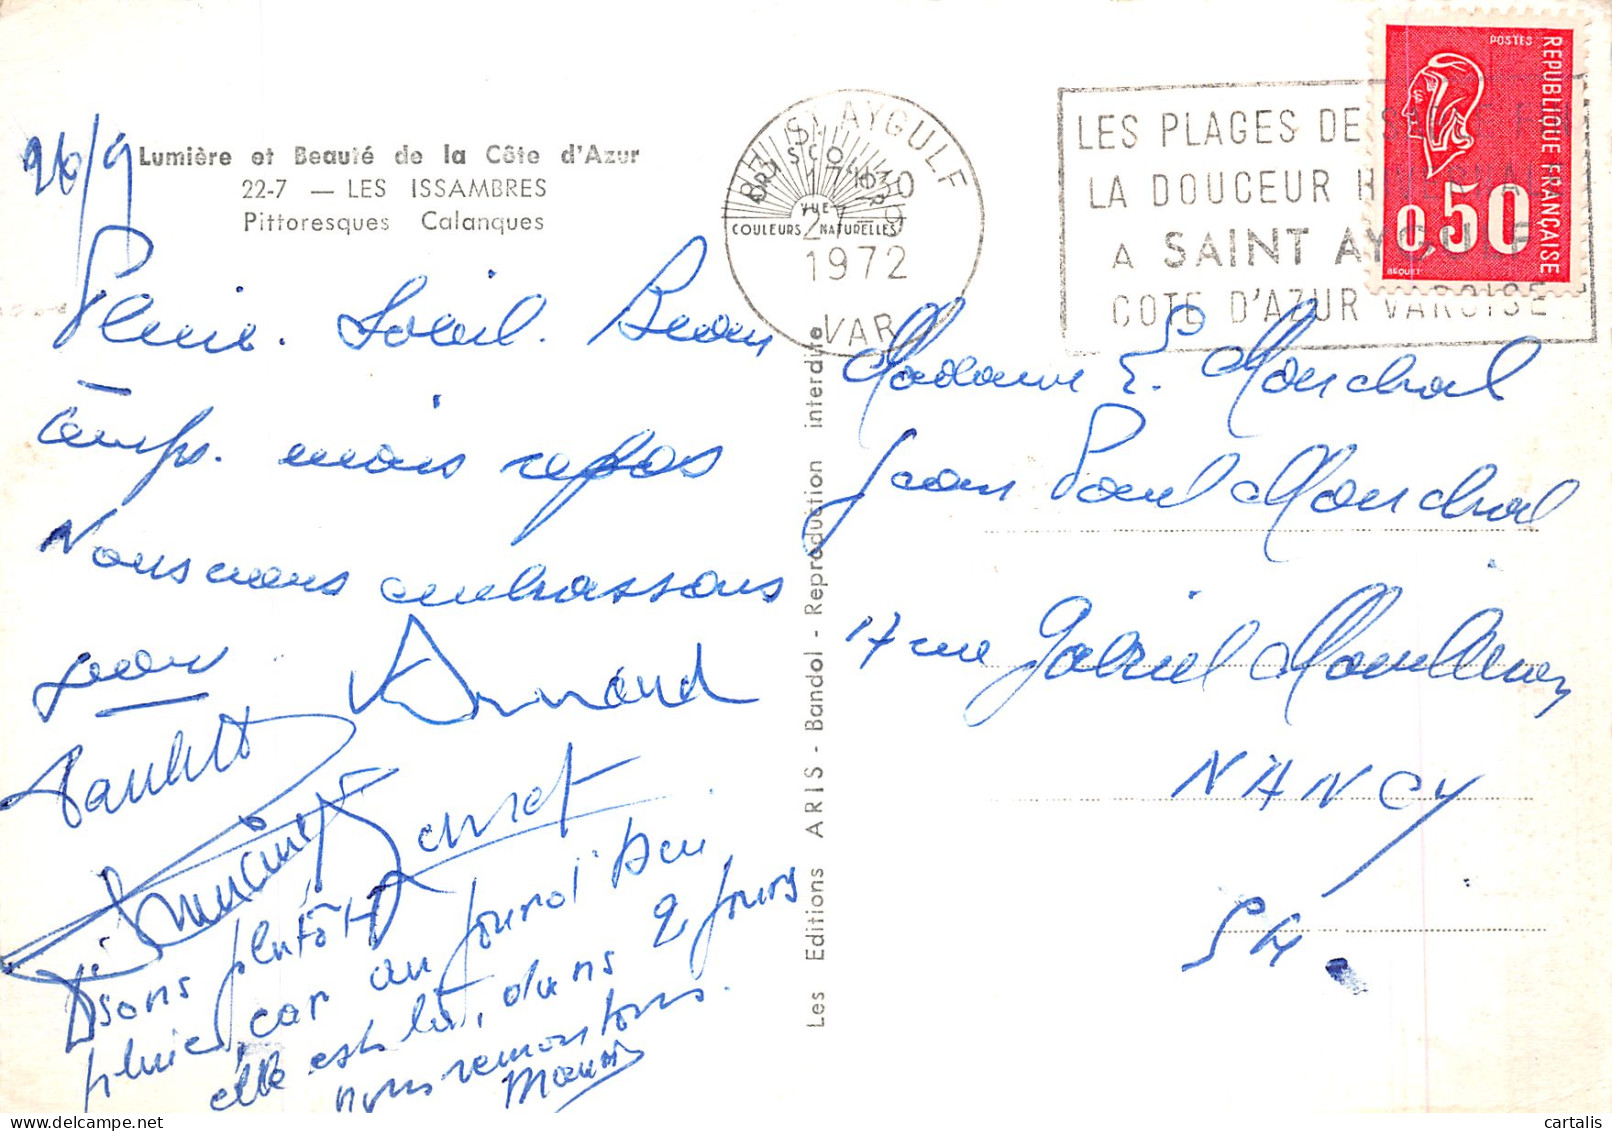 26/9
Lumière et Beauté de la Côte d'Azur
22-7 — LES ISSAMBRES
Pittoresques Calanques
Pluie. Soleil. Beau
temps. mais repos
Nous vous embrassons
Jean Armand
Paulette
Disons plutôt
pluie, car aujourd'hui
elle est là, dans 2 jours
nous remontons.
ST AYGULF
17H30
27-9
1972
VAR
VUE
COULEURS NATURELLES
Les Editions ARIS - Bandol - Reproduction interdite
LES PLAGES DE
LA DOUCEUR
A SAINT AYGULF
COTE D'AZUR VAROISE
POSTES
REPUBLIQUE FRANÇAISE
0,50
BEQUET
Madame E. Marchal
Jean Paul Marchal
17 rue Gabriel Mouilleron
NANCY
54.
cartalis